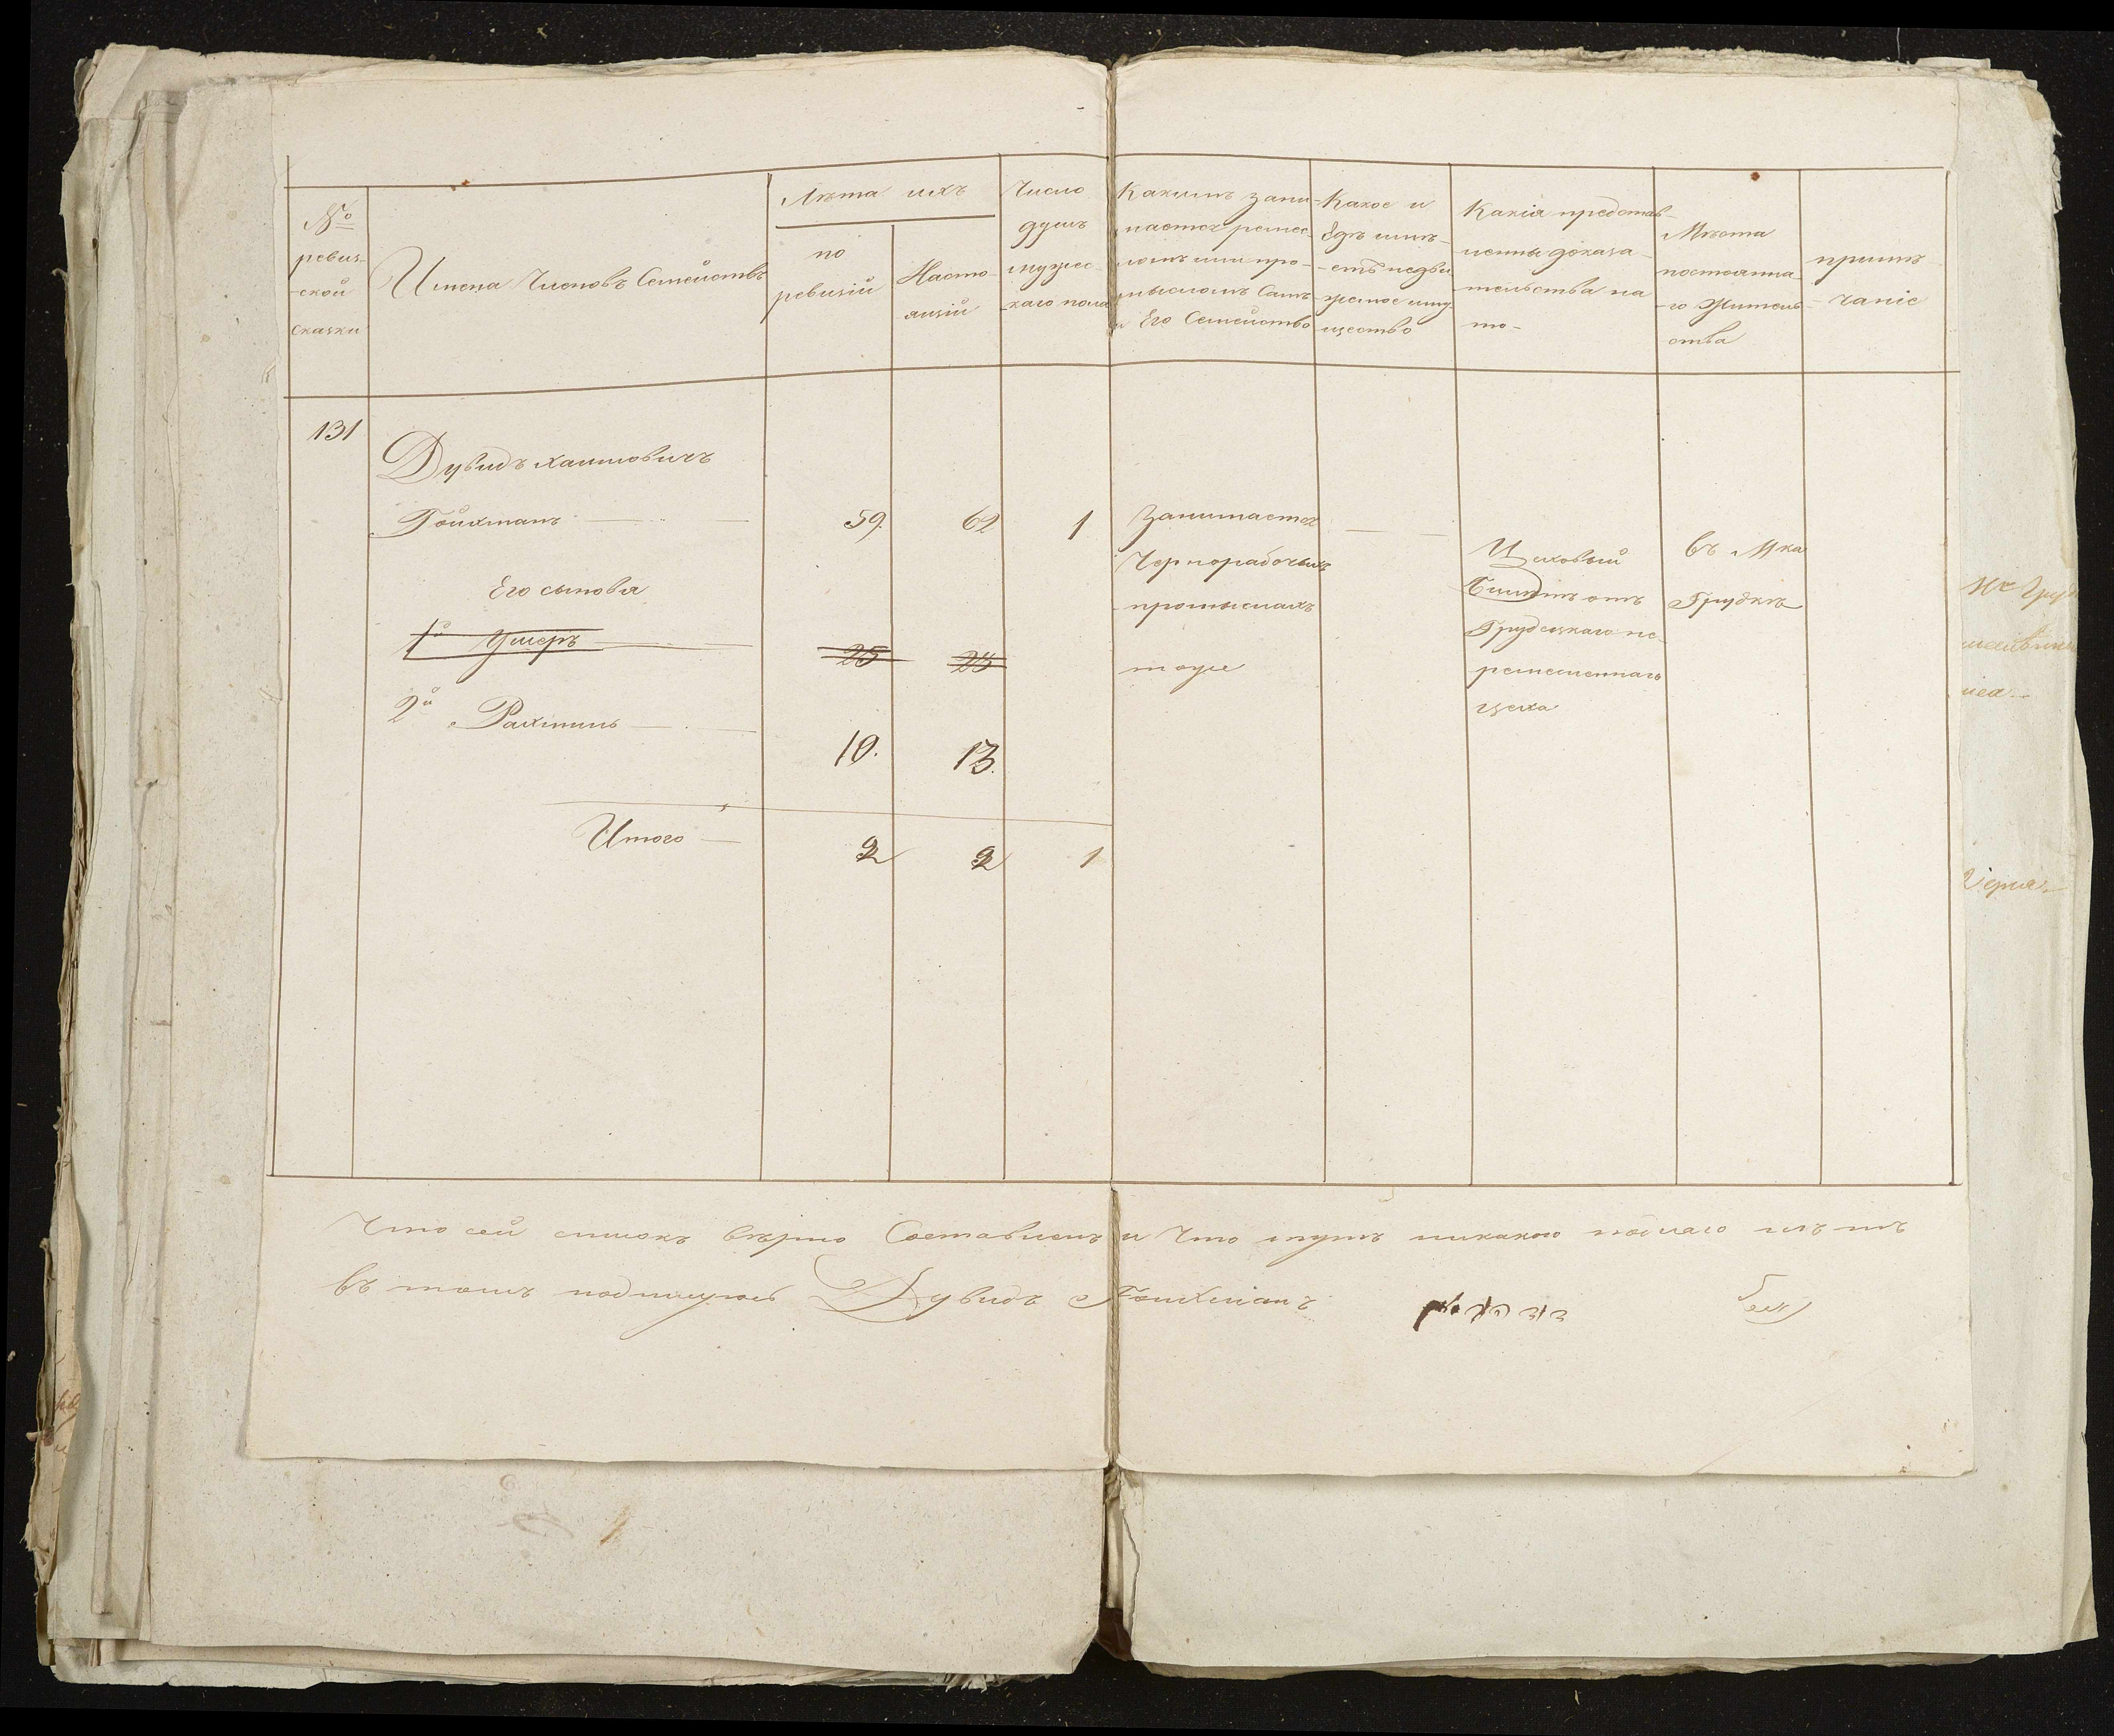 № ревиз-
ской
сказки
Имена Членовъ Семействъ
Лѣта ихъ
по
ревизіи
Насто-
ящіи
Число
душъ
мужес-
каго пола
Какимъ зани-
мается ремес-
ломъ или про-
мысломъ Самъ
и Его Семейство
Какое и
гдѣ имѣ-
етъ недви-
жимое иму-
щество
Какія представ-
лены доказа-
тельства на
то-
Мѣста
постоянна-
го Жительс-
ства
примѣ-
чаніе
131
Дувидъ Хаимовичъ
Гойхманъ 59. 62 1
Занимается
Чернорабочимъ
промысломъ
Цеховый
отъ
цеха
въ М-ка
Его сыновья
1й Умеръ 25 28
тоже
2й Рахмиль 10. 13.
Итого 2 2 1
Что сей списокъ вѣрно Составленъ и Что тутъ никакого нѣтъ
въ томъ подписуюсь Дувидъ Гойхманъ